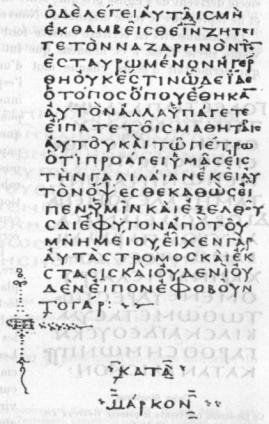 ΟΔΕΛΕΓΕΙΑΥΤΑΙϹΜΗ
ΕΚΘΑΜΒΕΙϹΘΕΙΝ̅ΖΗΤΕΙ
ΤΕΤΟΝΝΑΖΑΡΗΝΟΝΤΟ̅
ΕϹΤΑΥΡΩΜΕΝΟΝΗΓΕΡ
ΘΗΟΥΚΕϹΤΙΝΩΔΕΙΔΕ
ΟΤΟΠΟϹΟΠΟΥΕΘΗΚΑ̅
ΑΥΤΟΝΑΛΛΑΥΠΑΓΕΤΕ
ΕΙΠΑΤΕΤΟΙϹΜΑΘΗΤΑΙϹ
ΑΥΤΟΥΚΑΙΤΩΠΕΤΡΩ
ΟΤΙΠΡΟΑΓΕΙΥΜΑϹΕΙϹ
ΤΗΝΓΑΛΙΛΑΙΑΝΕΚΕΙΑΥ
ΤΟΝΟΨΕϹΘΕΚΑΘΩϹΕΙ
ΠΕΝΥΜΙΝΚΑΙΕΞΕΛΘΟΥ
ϹΑΙΕΦΥΓΟΝΑΠΟΤΟΥ
ΜΝΗΜΕΙΟΥΕΙΧΕΝΓΑΡ
ΑΥΤΑϹΤΡΟΜΟϹΚΑΙΕΚ
ϹΤΑϹΙϹΚΑΙΟΥΔΕΝΙΟΥ
ΔΕΝΕΙΠΟΝΕΦΟΒΟΥΝ
ΤΟΓΑΡ:
ΚΑΤΑ
ΜΑΡΚΟΝ